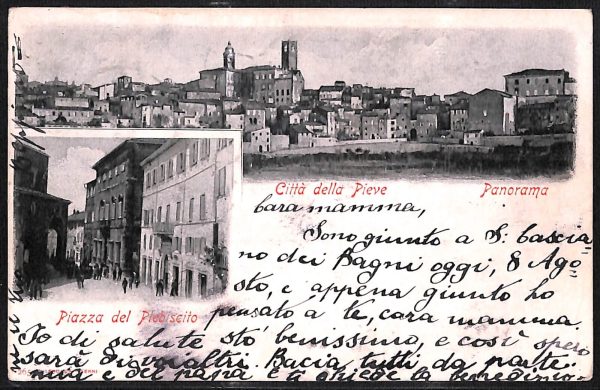 Città della Pieve
Panorama
Piazza del Plebiscito
Cara mamma,
Sono giunto a S. Cascia
no dei Bagni oggi, 8 Ago
sto, e appena giunto ho
pensato a te, cara mamma.
Io di salute stò benissimo, e così spero
sarà di voialtri. Bacia tutti da parte
mia e del papà e ti chiedo la benedizio